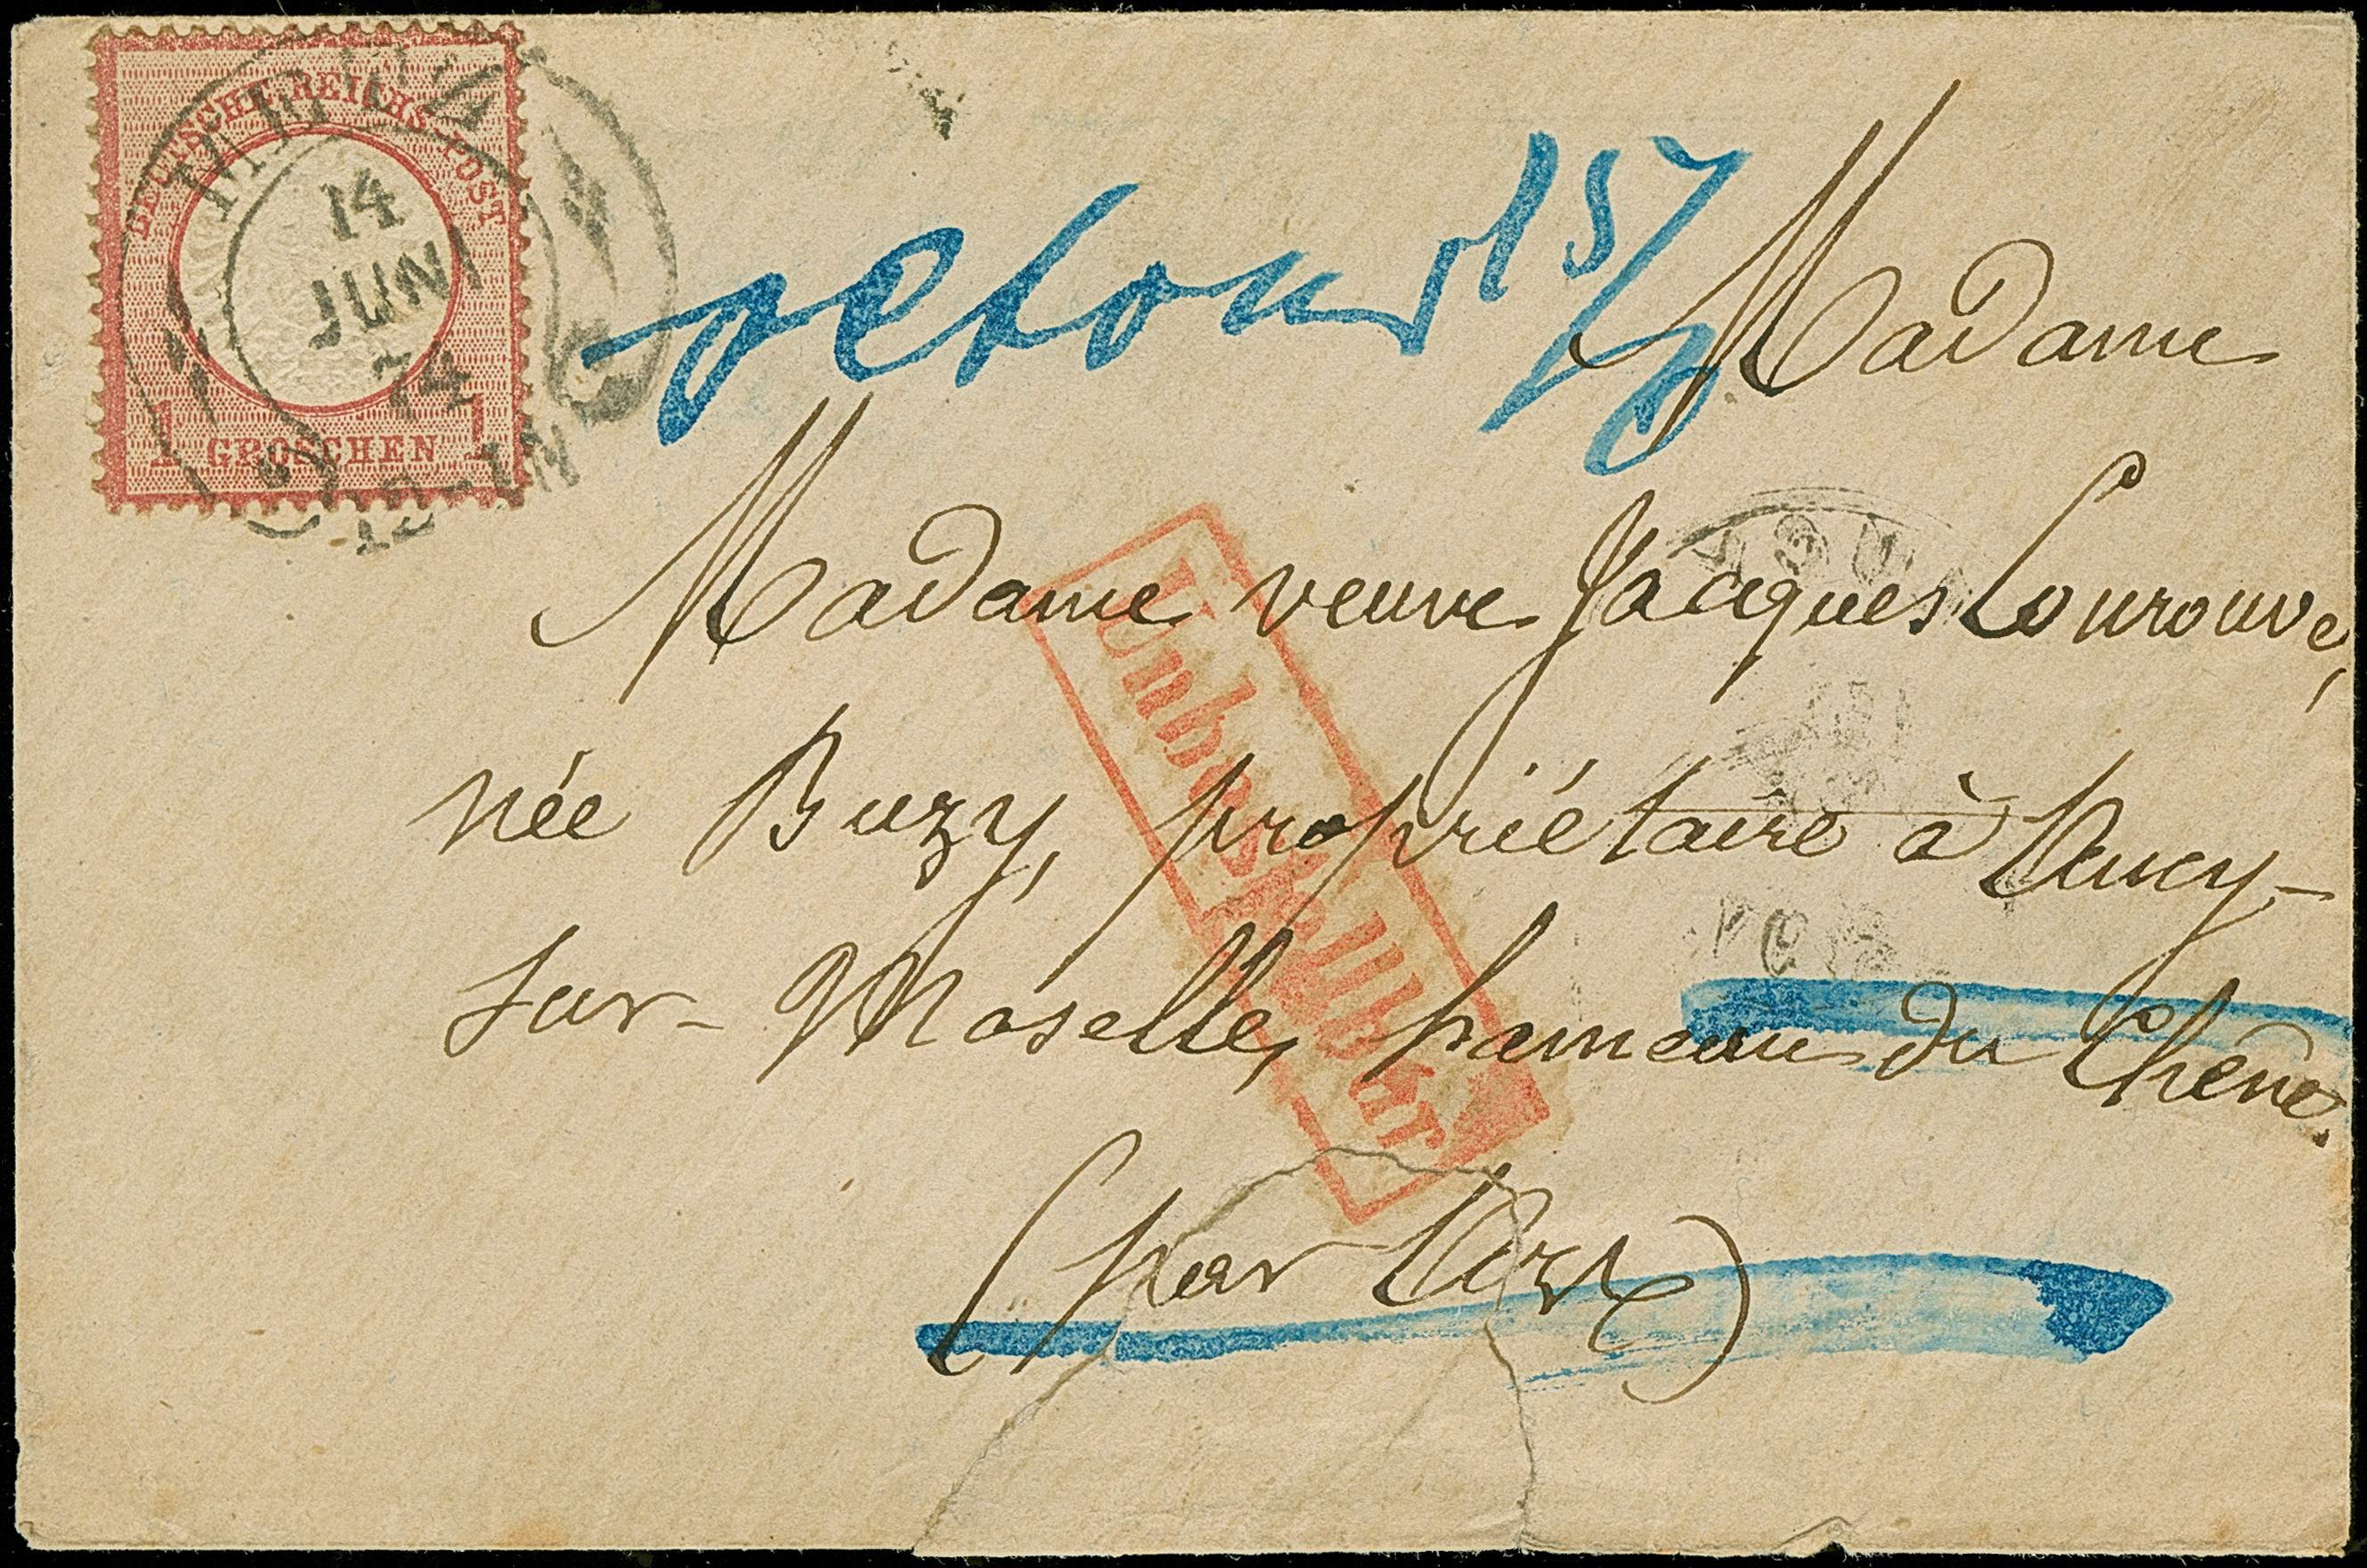 DEUTSCHE REICHS-POST
14
JUNI
74
1 GROSCHEN 1
12-1N
retour 15/6
Madame
Madame veuve Jacques Lourouve,
née Buzy, propriétaire à Ancy-
sur-Moselle, hameau du Chêne.
(par Ars)
Unbestellbar